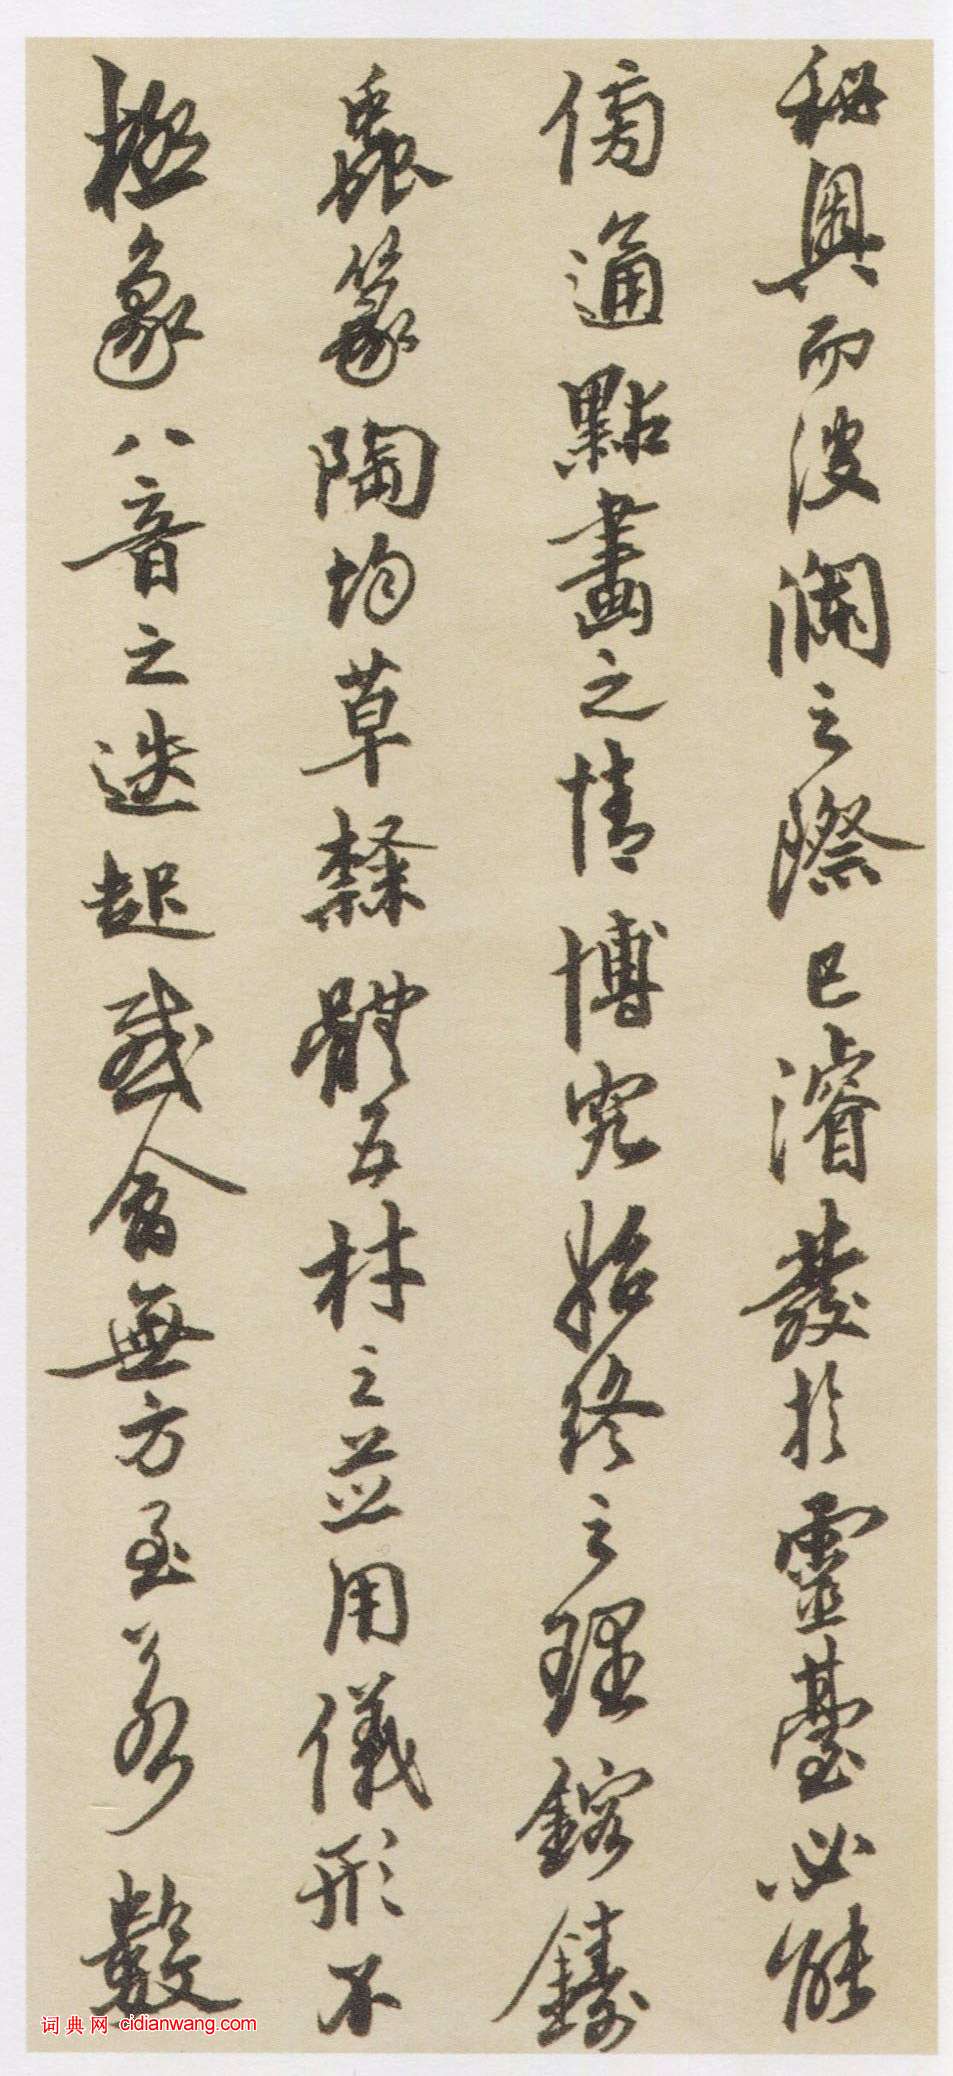 秘奥而波瀾之際已濬發於靈臺必能
傍通點畫之情博究始終之理鎔鑄
蟲篆陶均草隸體五材之並用儀形不
極象八音之迭起感會無方至若數
词典网 cidianwang.com